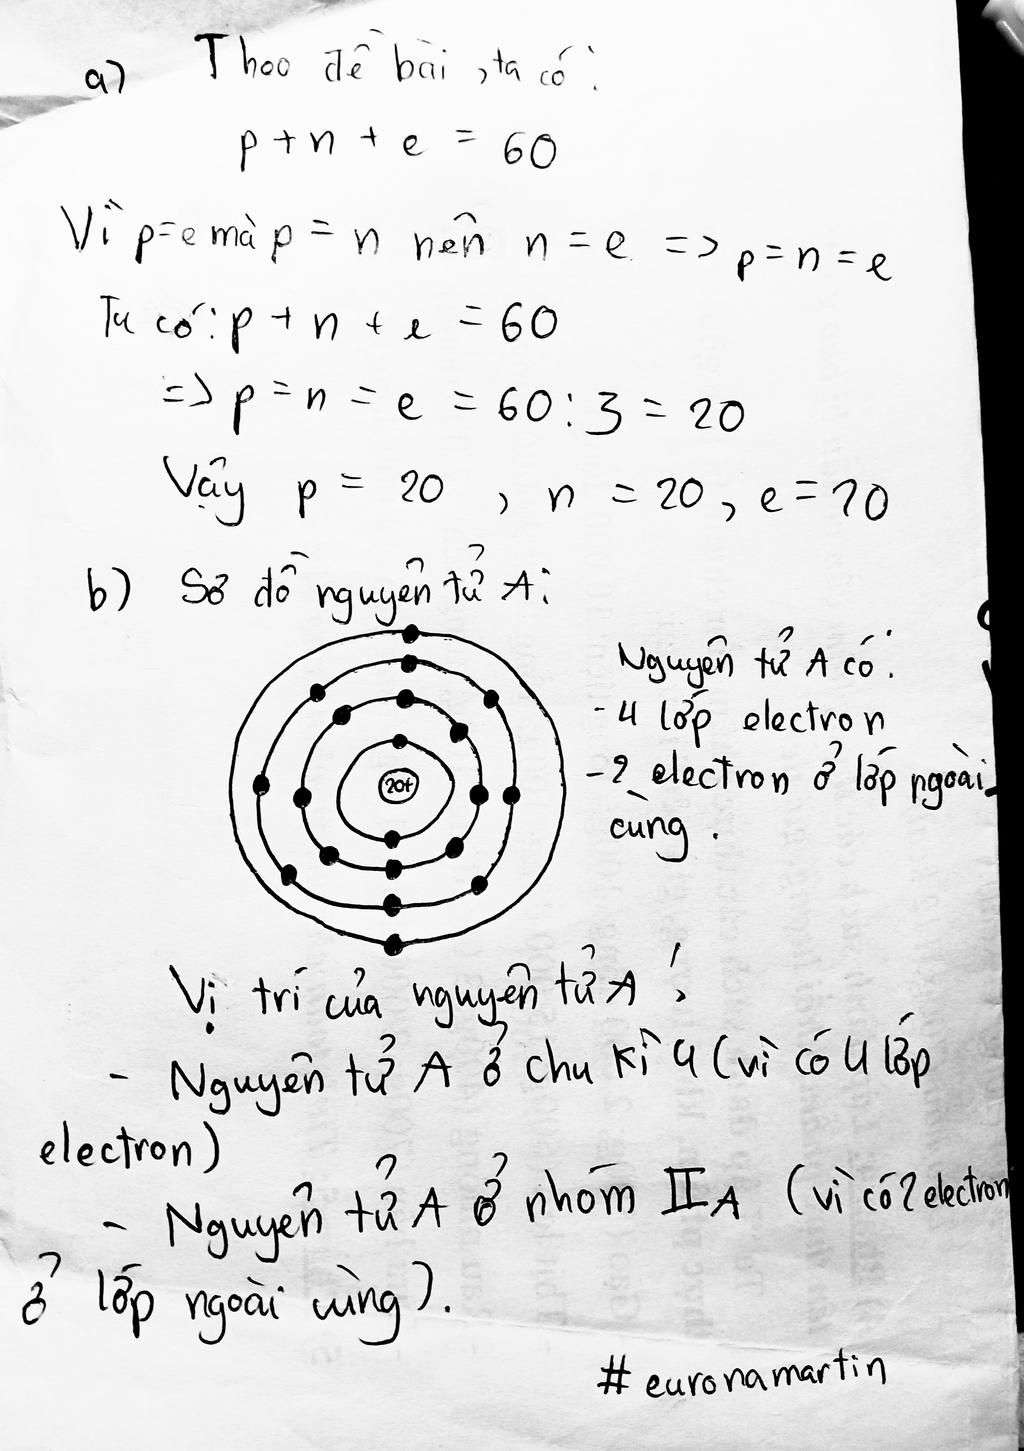 a) Theo đề bài, ta có:
p + n + e = 60
Vì p=e mà p = n nên n = e => p = n = e
Ta có: p + n + e = 60
=> p = n = e = 60 : 3 = 20
Vậy p = 20 , n = 20 , e = 20
b) Sơ đồ nguyên tử A:
20+
Nguyên tử A có:
- 4 lớp electron
- 2 electron ở lớp ngoài
cùng .
Vị trí của nguyên tử A :
- Nguyên tử A ở chu kì 4 (vì có 4 lớp
electron)
- Nguyên tử A ở nhóm IIA (vì có 2 electron
ở lớp ngoài cùng).
# euronamartin